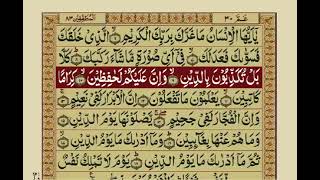 عم ٣٠ المطففين ٨٣
يٰۤاَيُّهَا الْاِنْسَانُ مَا غَرَّكَ بِرَبِّكَ الْكَرِيْمِ الَّذِيْ خَلَقَكَ
فَسَوّٰىكَ فَعَدَلَكَ فِيْۤ اَيِّ صُوْرَةٍ مَّا شَآءَ رَكَّبَكَ كَلَّا
بَلْ تُكَذِّبُوْنَ بِالدِّيْنِ وَاِنَّ عَلَيْكُمْ لَحٰفِظِيْنَ كِرَامًا
كَاتِبِيْنَ يَعْلَمُوْنَ مَا تَفْعَلُوْنَ اِنَّ الْاَبْرَارَ لَفِيْ نَعِيْمٍ
وَاِنَّ الْفُجَّارَ لَفِيْ جَحِيْمٍ يَّصْلَوْنَهَا يَوْمَ الدِّيْنِ
وَمَا هُمْ عَنْهَا بِغَآئِبِيْنَ وَمَاۤ اَدْرٰىكَ مَا يَوْمُ الدِّيْنِ
ثُمَّ مَاۤ اَدْرٰىكَ مَا يَوْمُ الدِّيْنِ يَوْمَ لَا تَمْلِكُ نَفْسٌ